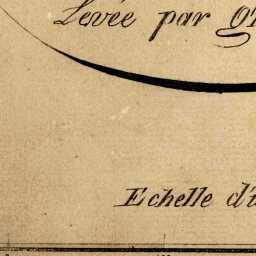 Levée par
Echelle